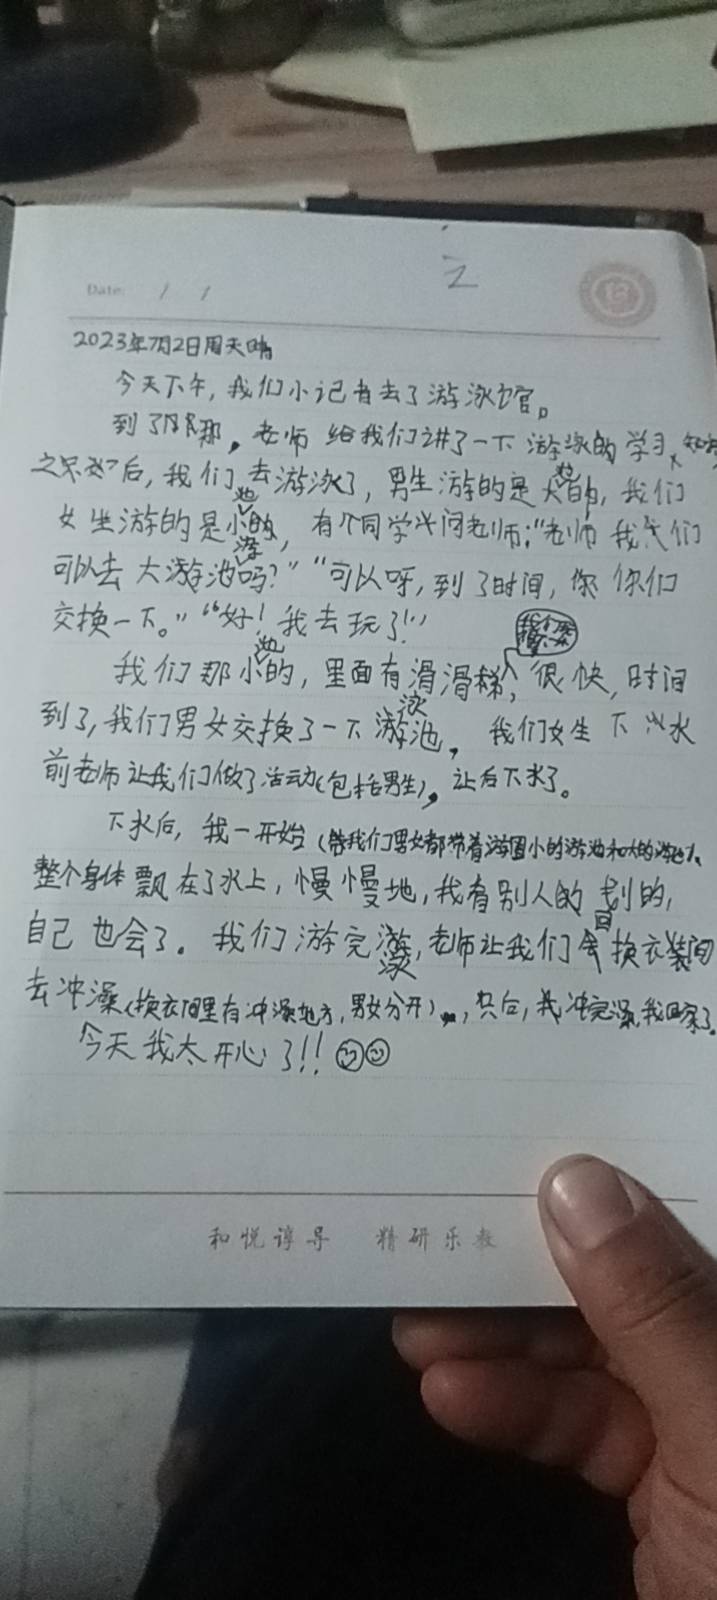 Date: / /
2023年7月2日周天晴
今天下午，我们小记者去了游泳馆。
到了那，老师给我们讲了一下游泳的学习知识
之后，我们去游泳了，男生游的是大池的，我们
女生游的是小池的，有个同学问老师：“老师我们
可以去大游池吗？”“可以呀，到了时间，你你们
交换一下。”“好！我去玩了！”
我们那小池的，里面有滑滑梯，很快，时间
到了，我们男女交换了一下游泳池，我们女生下水
前老师让我们做了活动（包括男生），让后下水了。
下水后，我一开始（我们男女都带着游圈小的游池和大的游池），
整个身体飘在了水上，慢慢地，我看别人的划的，
自己也会了。我们游完游泳，老师让我们回换衣装间
去冲澡（换衣间里有冲澡地方，男女分开），然后，我冲完澡，我回家了。
今天我太开心了！！
和悦谆导 精研乐教